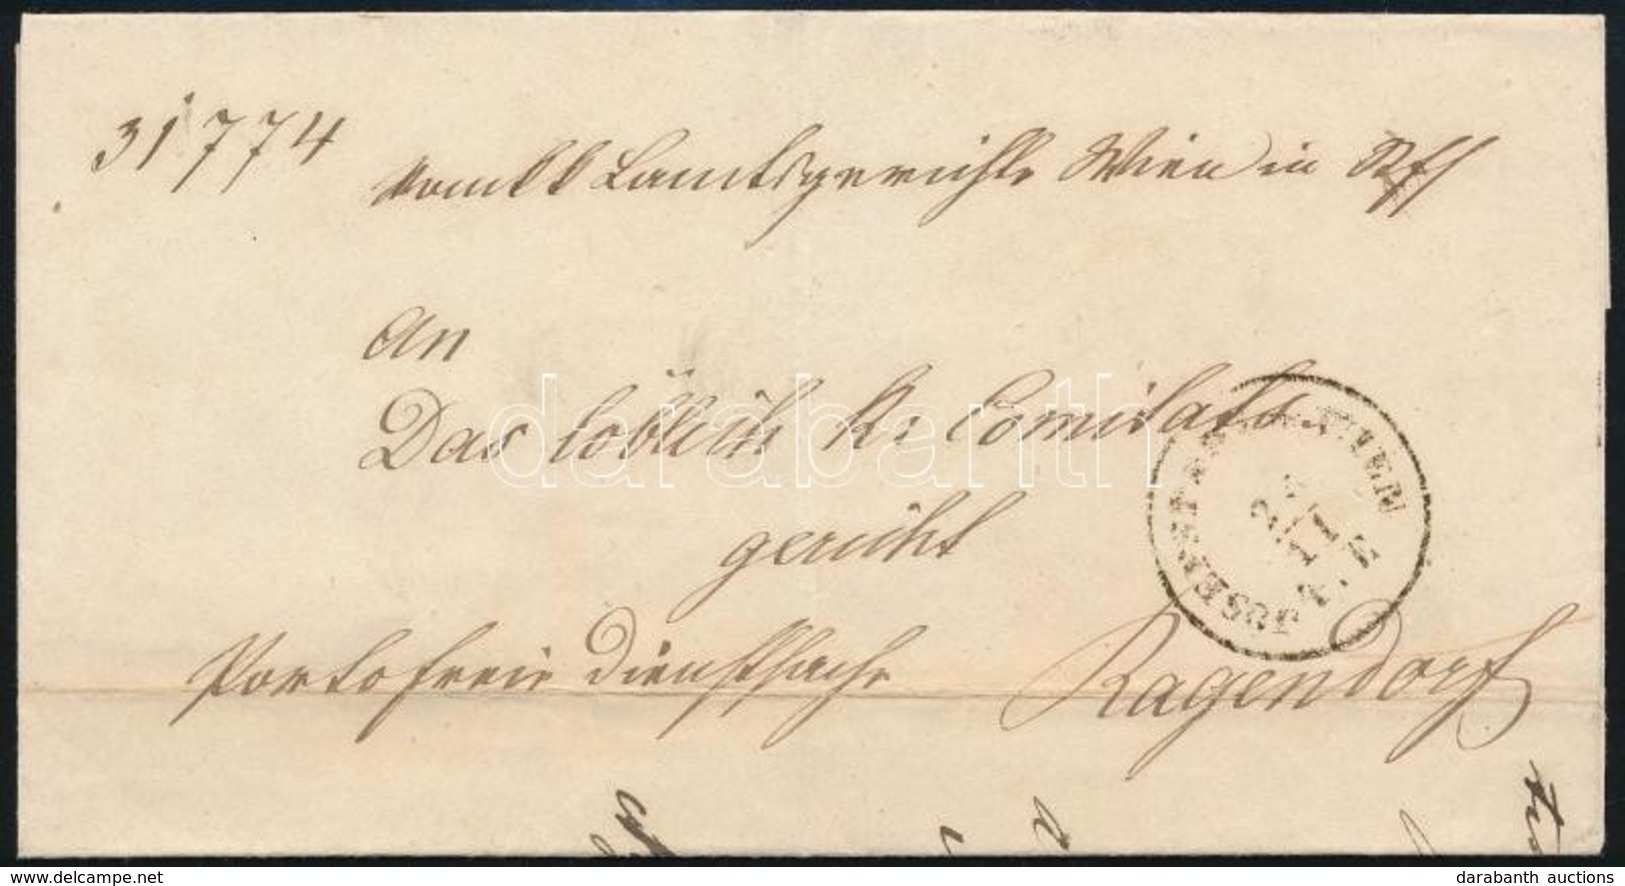 31774
vom k k Landesgerichte Wien in Rfs
An
Das löblich k: Comitats
gericht
Portofreie Dienstsache
Ragendorf
JOSEFSTADT WIEN
11
darabanth
www.delcampe.net
darabanth auctions